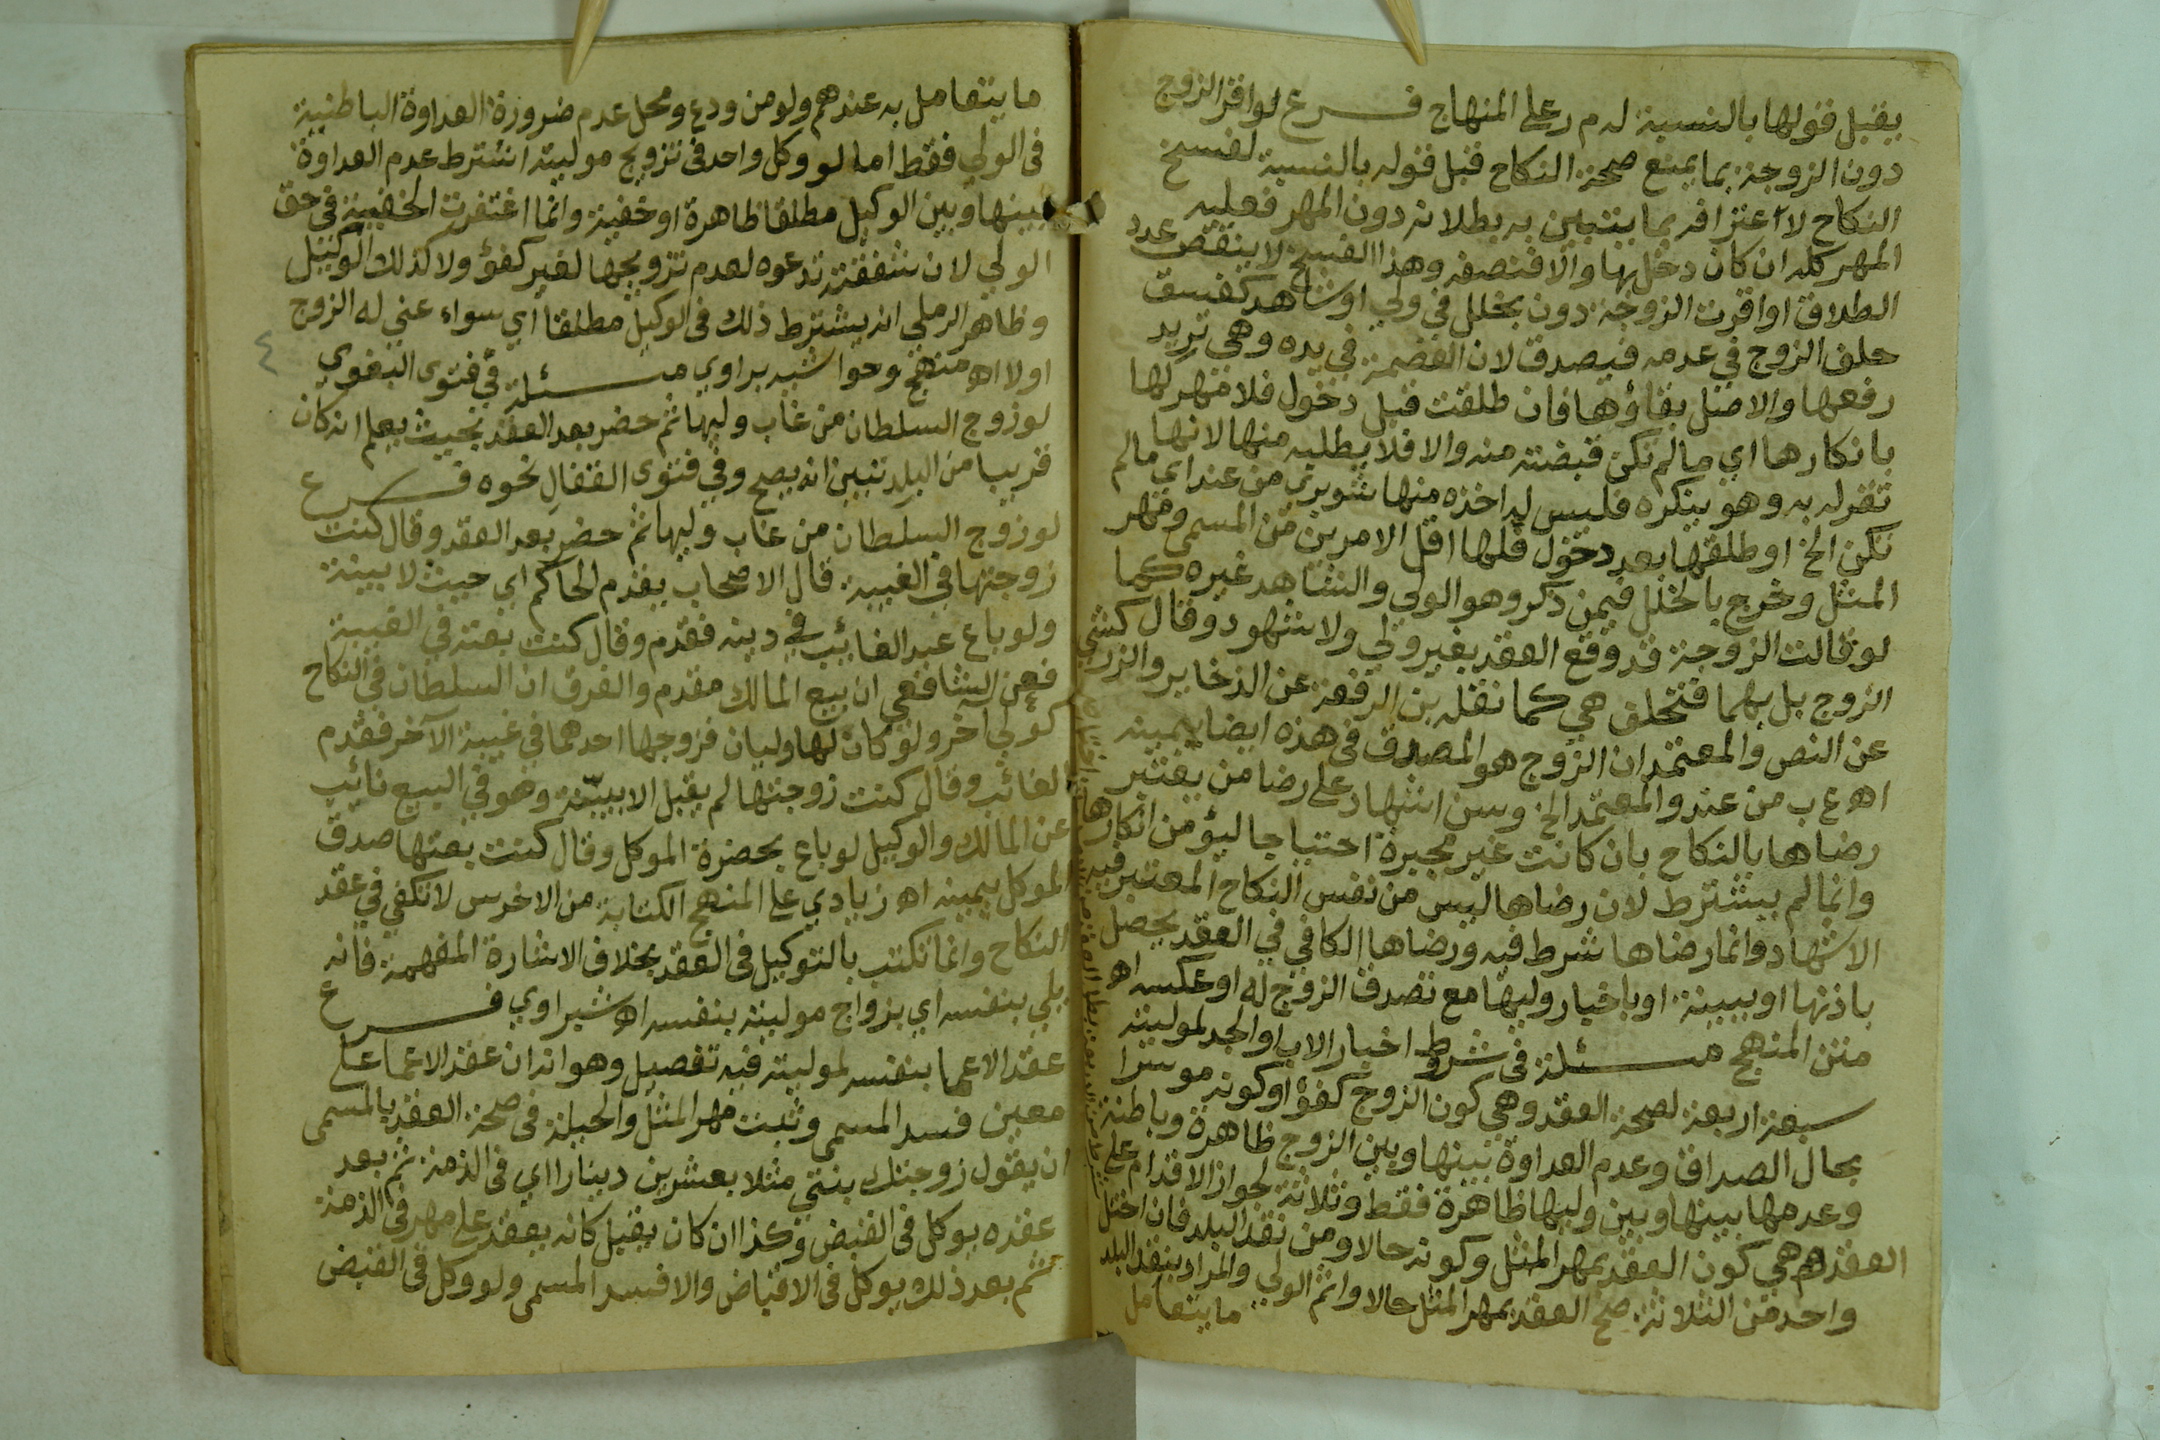 يقبل قولها بالنسبة له م ر على المنهاج فرع لو اقر الزوج
دون الزوجة بما يمنع صحة النكاح قبل قوله بالنسبة لفسخ
النكاح لا اعترافه بما يتبين به بطلانه دون المهر فعليه
المهر كله ان كان دخل بها والا فنصفه وهذا الفسخ لا ينقص عدد
الطلاق او اقرت الزوجة دون بخلل في ولي او شاهد كفسق
حلف الزوج في عدمه فيصدق لان العصمة في يده وهي تريد
رفعها والاصل بقاؤها فان طلقت قبل دخول فلا مهر لها
بانكارها اي ما لم تكن قبضته منه والا فلا يطلبه منها لانها
تقر له به وهو ينكره فليس له اخذه منها شوبري من عند اي ما لم
تكن الخ او طلقها بعد دخول فلها اقل الامرين من المسمى ومهر
المثل وخرج بالخلل فيمن ذكر وهو الولي والشاهد غيره كما
لو قالت الزوجة قد وقع العقد بغير ولي ولا شهود وقال
الزوج بل بهما فتحلف هي كما نقله بن الرفعة عن الذخاير والزركشي
عن النص والمعتمد ان الزوج هو المصدق في هذه ايضا بيمينه
اه ع ب من عند والمعتمد الخ وسن اشهاد على رضا من يعتبر
رضاها بالنكاح بان كانت غير مجبرة احتياطا ليؤمن انكارها
وانما لم يشترط لان رضاها ليس من نفس النكاح المعتبر فيه
الاشهاد وانما رضاها شرط فيه ورضاها الكافي في العقد يحصل
باذنها او ببينة او باخبار وليها مع تصدق الزوج له او عكسه اه
متن المنهج مسئلة في شروط اخبار الاب او الجد لموليته
سبعة اربعة لصحة العقد وهي كون الزوج كفؤا وكونه موسرا
بحال الصداق وعدم العداوة بينها وبين الزوج ظاهرة وباطنة
وعدمها بينها وبين وليها ظاهرة فقط وثلاثة لجواز الاقدام على
العقد وهي كون العقد بمهر المثل وكونه حالا ومن نقد البلد فان اختل
واحد من الثلاثة صح العقد بمهر المثل حالا واثم الولي والمراد بنقد البلد
ما يتعامل
ما يتعامل به عندهم ولو من ودع ومحل عدم ضرورة العداوة الباطنية
في الولي فقط اما لو وكل واحد في تزويج موليته اشترط عدم العداوة
بينها وبين الوكيل مطلقا ظاهرة او خفية وانما اغتفرت الخفية في حق
الولي لان شفقته تدعوه لعدم تزويجها لغير كفؤ ولا كذلك الوكيل
وظاهر الرملي انه يشترط ذلك في الوكيل مطلقا اي سواء عني له الزوج
اولا اه منهج وحواشيه براوي مسئلة في فتوى البغوي
لو زوج السلطان من غاب وليها ثم حضر بعد العقد بحيث يعلم انه كان
قريبا من البلد تبين انه يصح وفي فتوى القفال نحوه فرع
لو زوج السلطان من غاب وليها ثم حضر بعد العقد وقال كنت
زوجتها في الغيبة قال الاصحاب يقدم الحاكم اي حيث لا بينة
ولو باع عبد الغائب في دينه فقدم وقال كنت بعته في الغيبة
فعن الشافعي ان بيع المالك مقدم والفرق ان السلطان في النكاح
كولي اخر ولو كان لها وليان فزوجها احدهما في غيبة الاخر فقدم
الغائب وقال كنت زوجتها لم يقبل الا ببينة وهو في البيع نائب
عن المالك والوكيل لو باع بحضرة الموكل وقال كنت بعتها صدق
الموكل بيمينه اه زيادي على المنهج الكتابة من الاخرس لا تكفي في عقد
النكاح وانما تكتب بالتوكيل في العقد بخلاف الاشارة المفهمة فانه
يلي بنفسه اي بزواج موليته بنفسه اه شبراوي فرع
عقد الاعما بنفسه لموليته فيه تفصيل وهو انه ان عقد الاعما على
معين فسد المسمى وثبت مهر المثل والحيلة في صحة العقد بالمسمى
ان يقول زوجتك بنتي مثلا بعشرين دينارا اي في الذمة ثم بعد
عقده يوكل في القبض وكذا ان كان يقبل كانه يعقد على مهر في الذمة
ثم بعد ذلك يوكل في الاقباض والا فسد المسمى ولو وكل في القبض